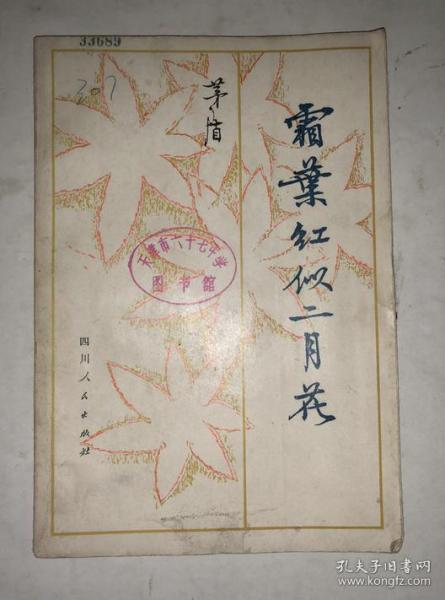 33689
207
茅盾
霜葉红似二月花
天津市六十七中学
图书馆
四川人民出版社
孔夫子旧书网
www.kongfz.com